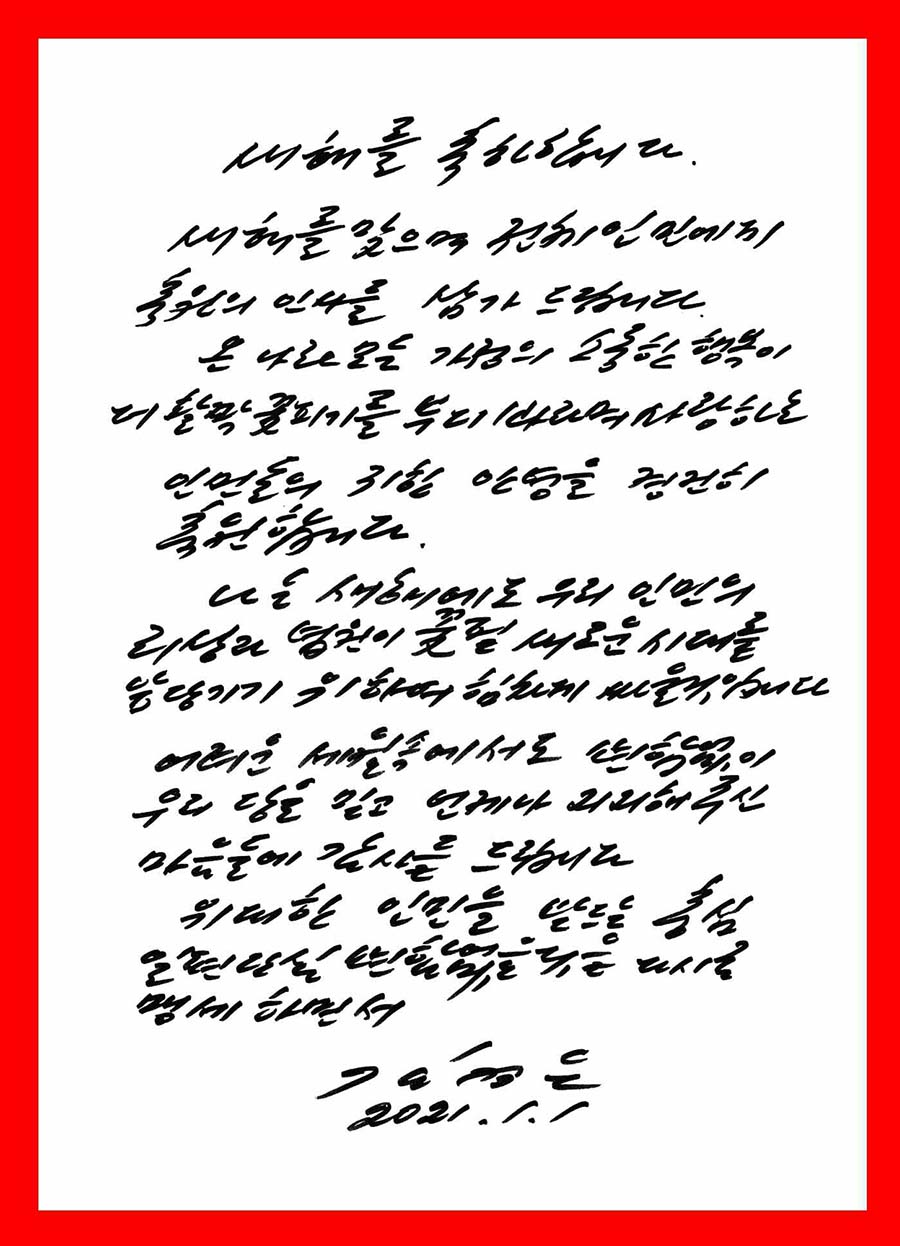 새해를 축하합니다.
새해를 맞으며 전체 인민에게
축원의 인사를 삼가 드립니다.
온 나라 모든 가정의 소중한 행복이
더 활짝 꽃피기를 부디 바라며 사랑하는
인민들의 귀한 안녕을 경건히
축원합니다.
나는 새해에도 우리 인민의
리상과 념원이 꽃필 새로운 시대를
앞당기기 위하여 힘차게 싸울것입니다
어려운 세월속에서도 변함없이
우리 당을 믿고 언제나 지지해주신
마음들에 감사를 드립니다
위대한 인민을 받드는 충심
일편단심 변함없을것을 다시금
맹세하면서
김정은
2021.1.1